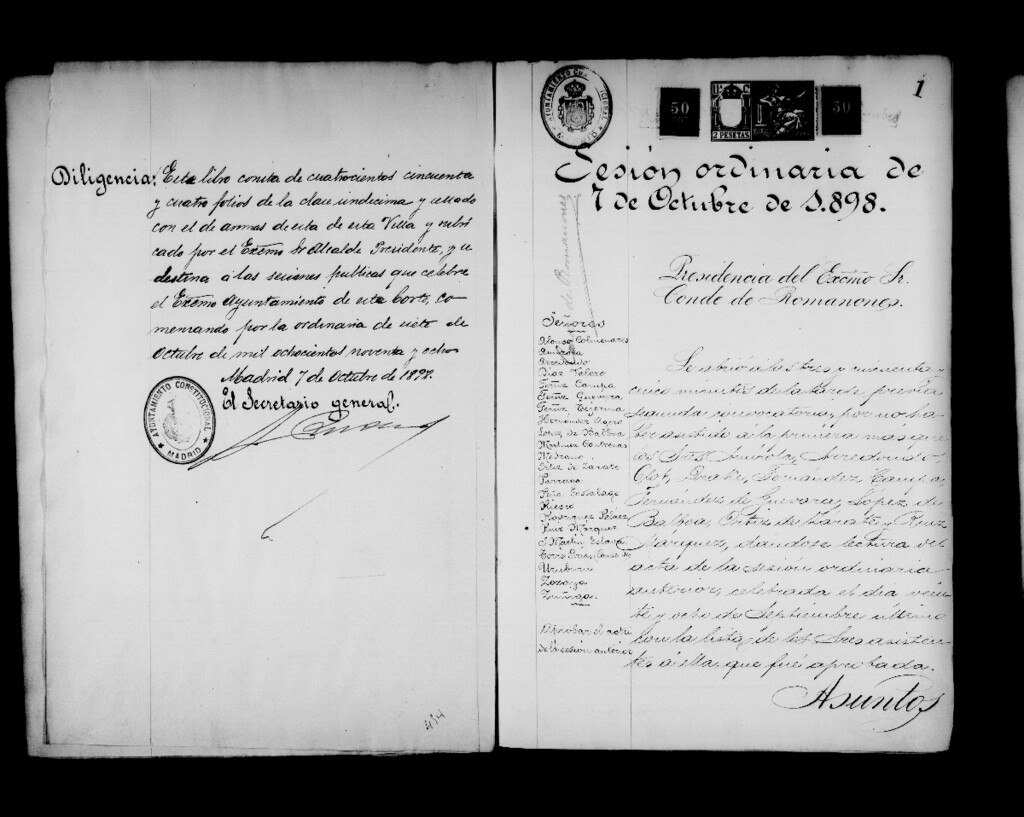 Diligencia: Este libro consta de cuatrocientos cincuenta
y cuatro folios de la clase undécima y sellado
con el de armas de esta Villa y rubri
cado por el Excmo Sr Alcalde Presidente, y se
destina á las sesiones publicas que celebre
el Excmo Ayuntamiento de esta Corte, co-
menzando por la ordinaria de siete de
Octubre de mil ochocientos noventa y ocho
Madrid 7 de Octubre de 1898.
El Secretario general.
AYUNTAMIENTO CONSTITUCIONAL
MADRID
AYUNTAMIENTO
50
2 PESETAS
50
1
Sesión ordinaria de
7 de Octubre de 1.898.
de Romanones
Presidencia del Excmo Sr.
Conde de Romanones.
Señores
Alonso Colmenares
Arredondo
Diaz Valero
Fernz Campa
Fernz Guevara
Fernz Tejerina
Hernández
Lopez de Balboa
Martinez Contreras
Medrano
Ortiz de Zarate
Párraga
Riesco
Rodriguez Pelaez
Ruiz Márquez
S. Martin
Uruburu
Zozaya
Zuñiga.
Aprobar el acta
de la sesión anterior
Se abrió á las tres y cincuenta y
cinco minutos de la tarde, previa
segunda convocatoria, por no ha-
ber asistido á la primera más que
los Sres Arredondo,
Fernández Campa,
Fernández de Guevara, Lopez de
Balboa, Ortiz de Zarate y Ruiz
Marquez, dandose lectura del
acta de la sesión ordinaria
anterior, celebrada el dia vein-
te y ocho de Septiembre último
con la lista de los Sres asisten-
tes á ella, que fué aprobada.
Asuntos